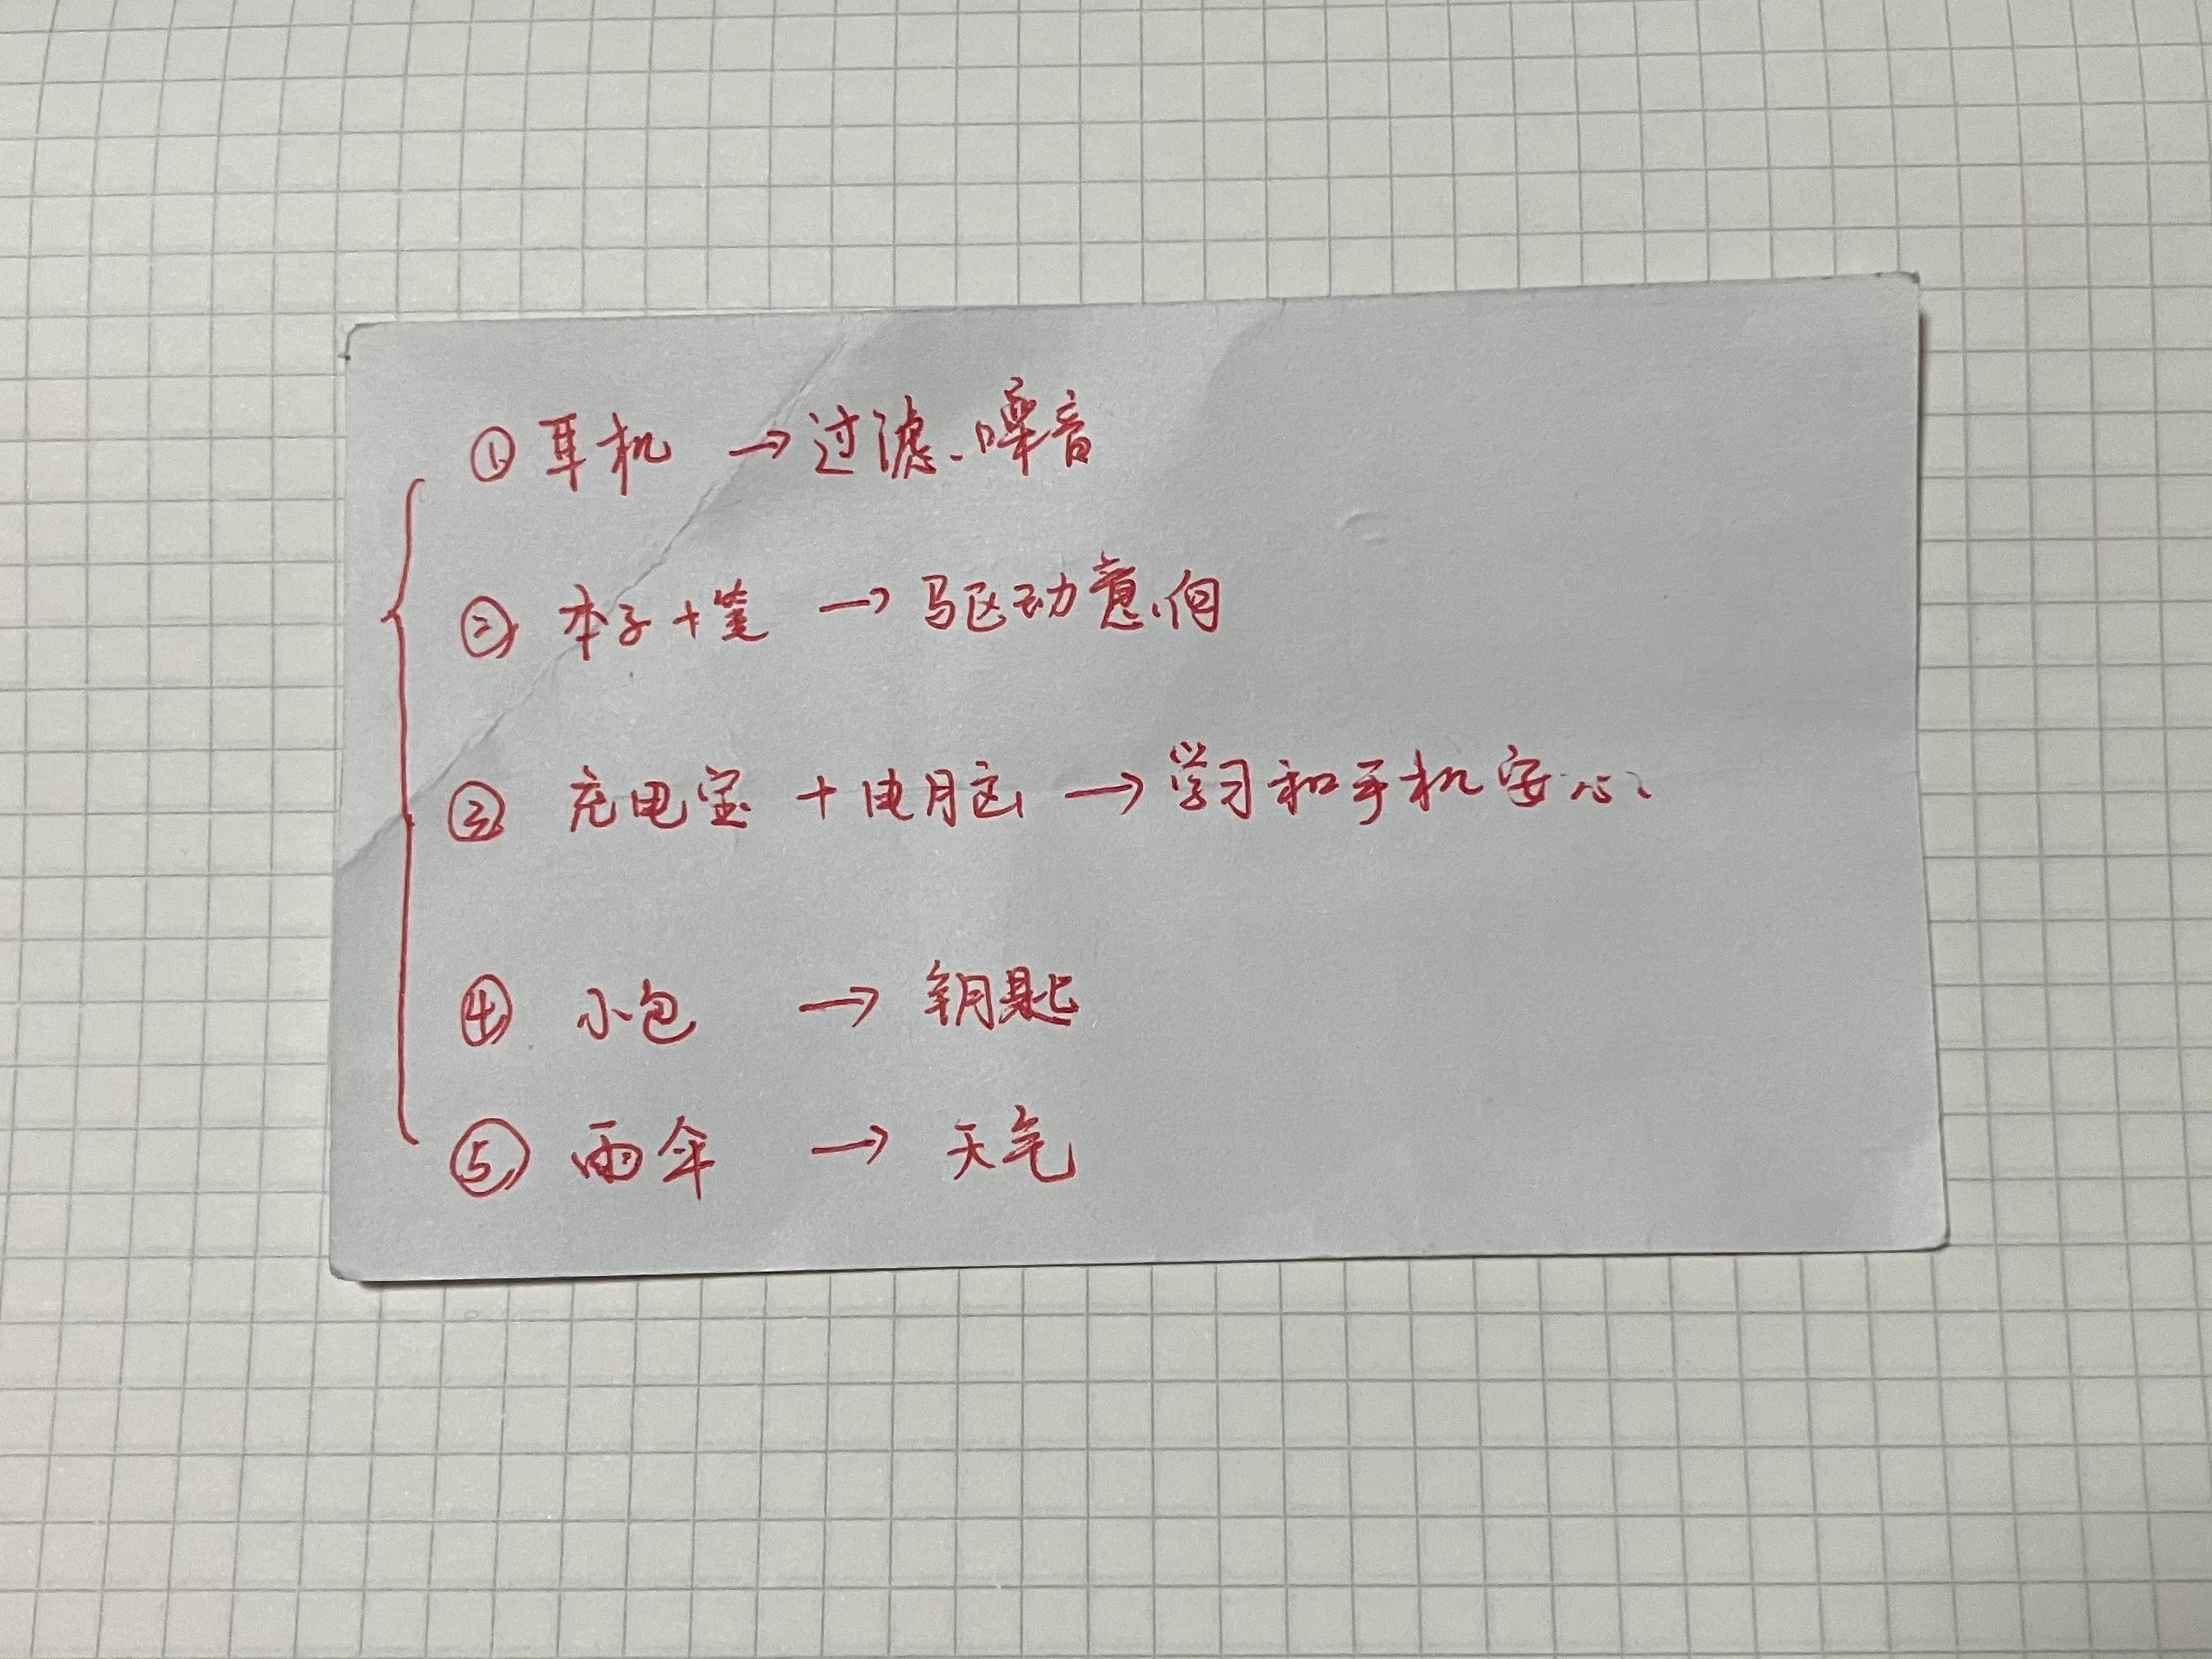 ① 耳机 → 过滤噪音
② 本子+笔 → 驱动意向
③ 充电宝 + 电脑 → 学习和手机安心
④ 小包 → 钥匙
⑤ 雨伞 → 天气